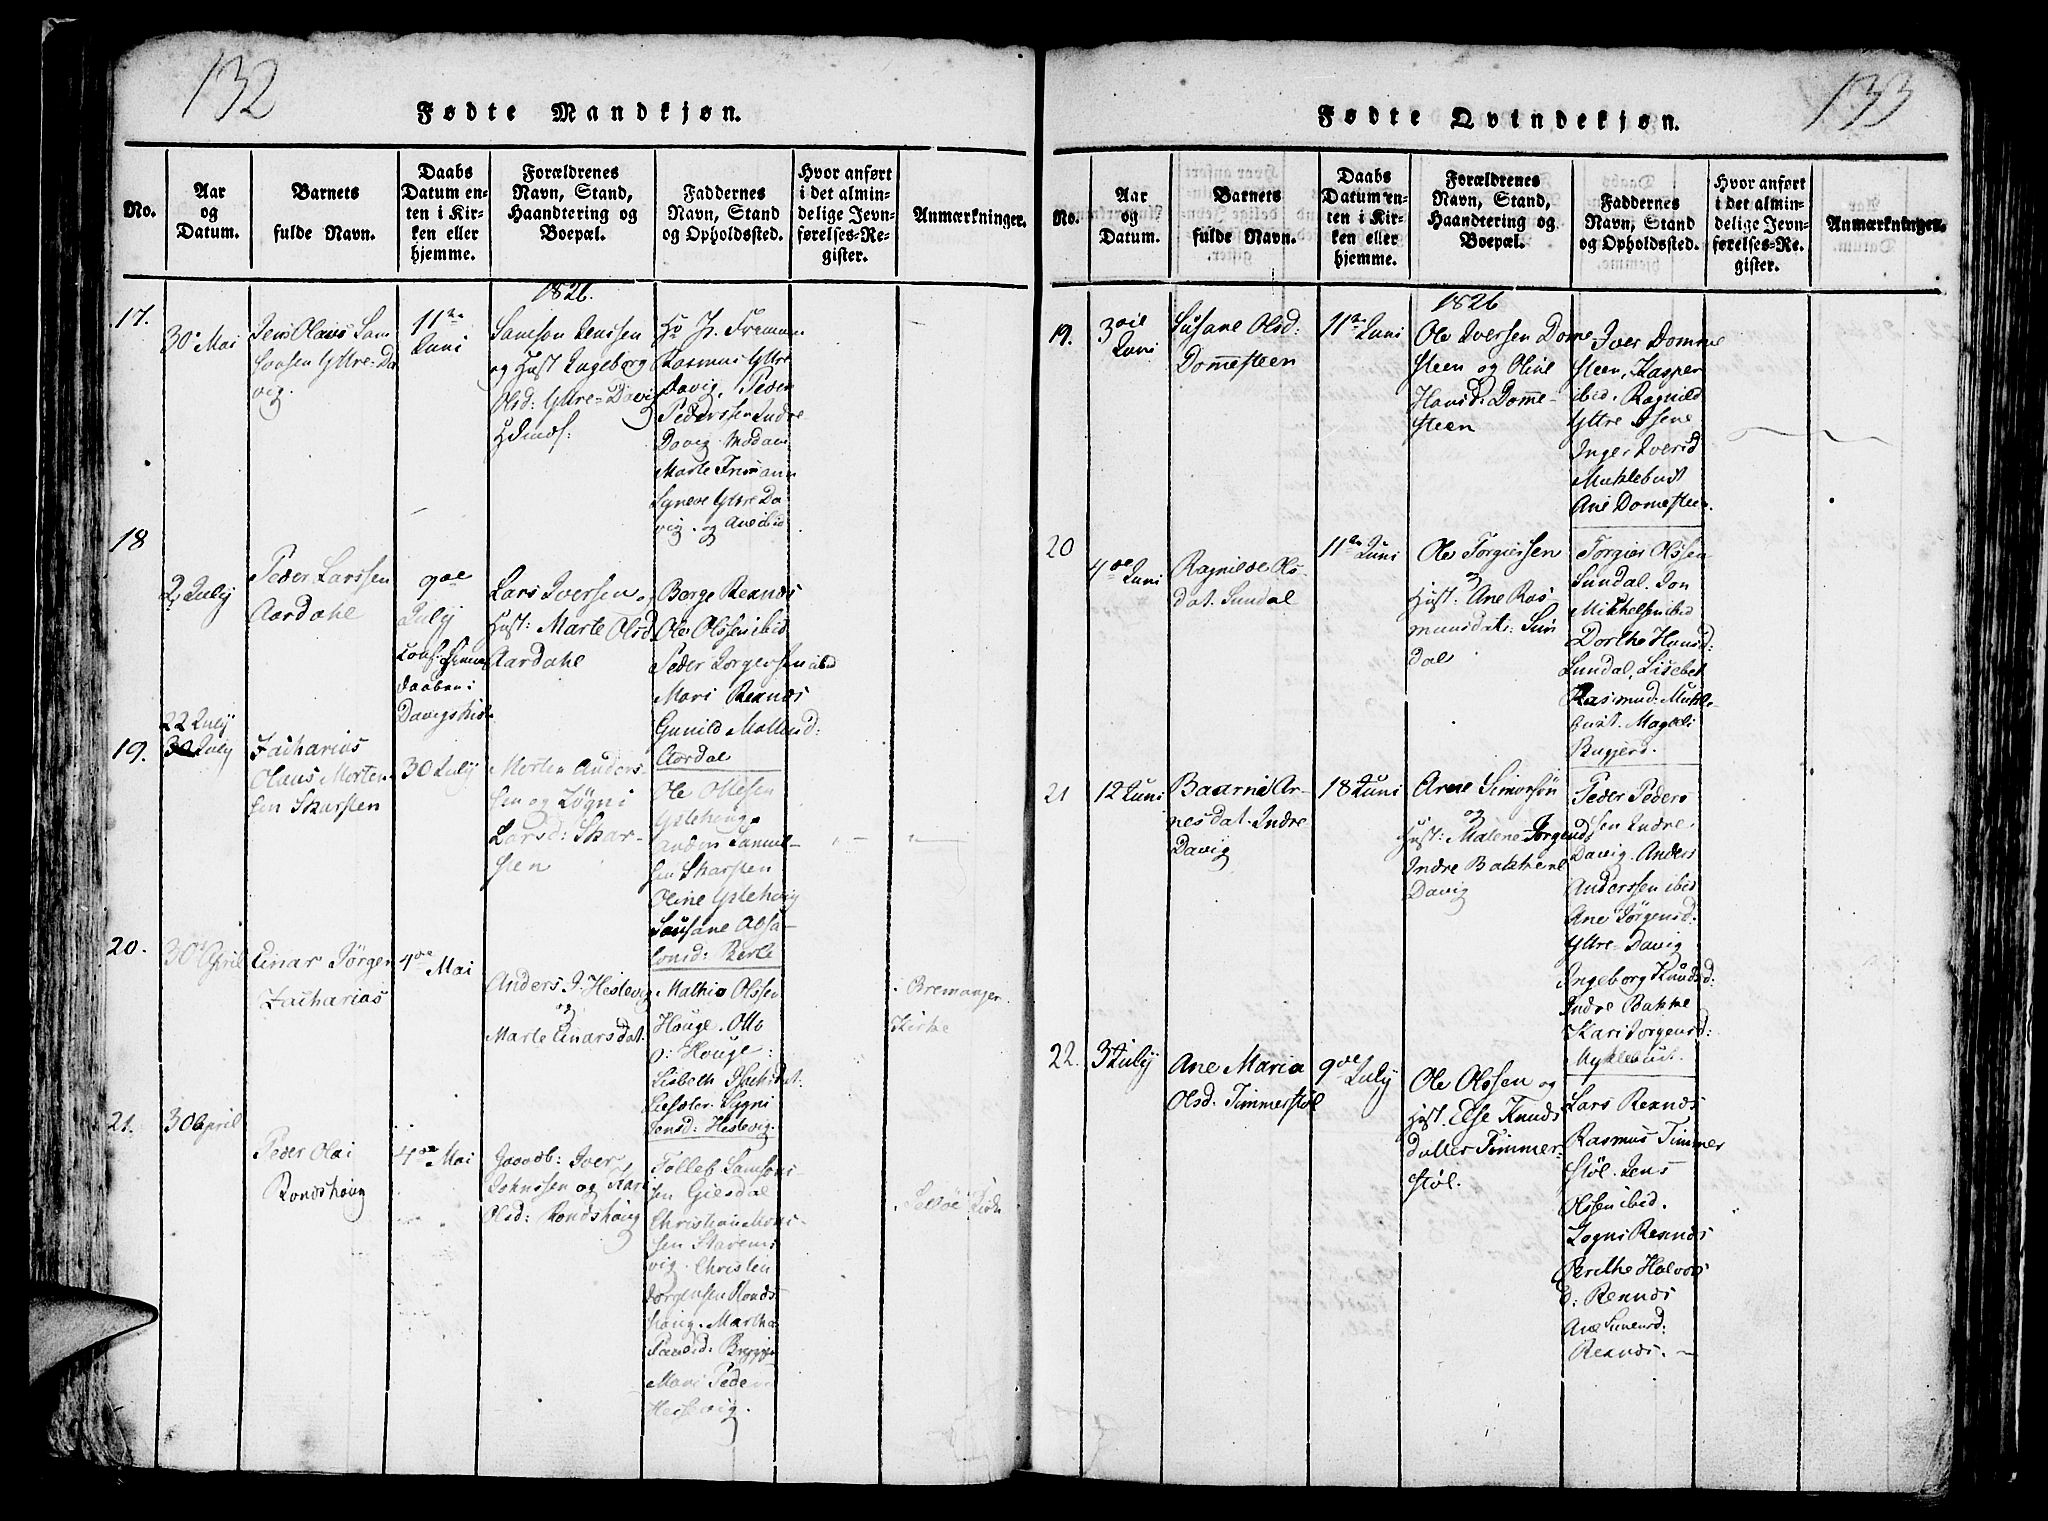 132
Fødte Mandkjøn.
No.
Aar
og
Datum.
Barnets
fulde Navn.
Daabs
Datum en-
ten i Kir-
ken eller
hjemme.
Forældrenes
Navn, Stand,
Haandtering og
Boepæl.
Faddernes
Navn, Stand
og Opholdssted.
Hvor anført
i det almin-
delige Jevn-
førelses-Re-
gister.
Anmærkninger.
1826.
17.
30 Mai
Jens Olaus Sam
sonsen Yttre-Da
vig.
11te
Juni
Samson Jenssen
og Hust Ingeborg
Olsd: Yttre-Davig
Hr J. Frimann
Rasmus Yttre
Davig, Peder
Pederssen Indre
Davig. Madam
Marte Frimann
Synneve Yttre Da
vig. og Ane ibid
18
2 July
Peder Larssen
Aardahl
9de
July
Conf: hjemme
daaben i
Davigs kirke
Lars Iversen og
Hust: Marte Olsd
Aardahl
Børge Rexnæs
Ole Olssen ibid
Peder Jørgenssen ibid
Mari Rexnæs
Gunild
Aardal
19.
22 July
30 July
Zacharias
Olaus Morten
sen Skarsten
30 July
Morten Anders-
sen og Løgni
Larsd: Skar-
sten
Ole Ottesen
Ystehoug
Anders Samuel-
sen Skarsten
Oline Ystehoug
Sausane Absa-
lonsd: Berle
20.
30 April
Einar Jørgen
Zacharias
4de Mai
Anders J. Hestevig
og
Marte Einarsdat.
Mathis Olssen
Houge. Otto
Houge
Lisbeth Isachsdat.
Løgni
Jonsd: Hestevig.
Bremanger
Kirke
21.
30 April
Peder Olai
Rondshoug
4de Mai
Gaardb: Iver
Johnssen og Kari
Olsd: Rondshoug
Tolleb Samsons
sen Giesdal
Christian Mons
sen Stavens
vig. Christen
Jørgensen Ronds
houg. Martha
Mari Peders
Hessevig.
Selløe Kirke
133
Fødte Qvindekjøn.
No.
Aar
og
Datum.
Barnets
fulde Navn.
Daabs
Datum en-
ten i Kir-
ken eller
hjemme.
Forældrenes
Navn, Stand,
Haandtering og
Boepæl.
Faddernes
Navn, Stand
og Opholdssted.
Hvor anført
i det almin-
delige Jevn-
førelses-Re-
gister.
Anmærkninger.
1826
19.
3die
Juni
Susane Olsd:
Domesteen
11te Juni
Ole Iversen Dome-
steen og Oline
Hansd: Dome-
steen
Iver Domme
steen, Kasper
ibid. Ragnild
Yttre Øsene
Inger Iversd
Muklebust
Ane Domesteen.
20
4de Juni
Ragnilde Ols
dat. Sundal
11te Juni
Ole Torgierssen
og
Hust: Ane Ras
musdat: Sun
dal
Torgier Olssen
Sundal. Jon
Mikkelsen ibid
Dorthe Hansd:
Sundal, Lisebet
Rasmusd: Mukle
bust. Magdeli
Rugjerd.
21
12 Juni
Baarni Ar-
nesdat. Indre
Davig
18 Juni
Arne Simonsøn
og
Hust: Malene Jørgensd
Indre Bakkene
Davig
Peder Peders
sen Indre
Davig. Anders
Anderssen ibid
Ane Jørgensd.
Yttre-Davig
Ingeborg Knudsd:
Indre Bakke
Kari Jørgensd:
Myklebust.
22.
3 July
Ane Maria
Olsd. Timmerstøl
9de July
Ole Olssen og
Hust. Else Knuds
datter Timmer-
støl.
Lars Rexnæs
Rasmus Timmer
støl. Jens
Olssen ibid.
Logni Rexnæs
Berithe Halvors
d: Rexnæs
Ane
Rexnæs.